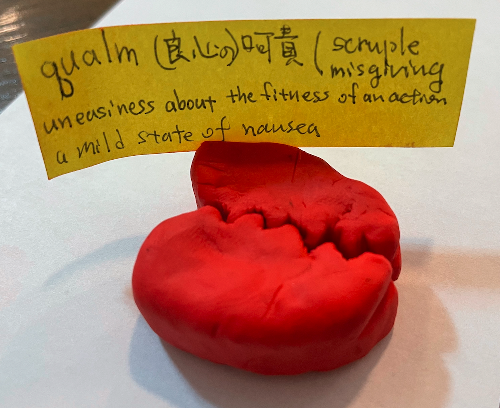 qualm (良心の)呵責 (scruple
misgiving
uneasiness about the fitness of an action
a mild state of nausea